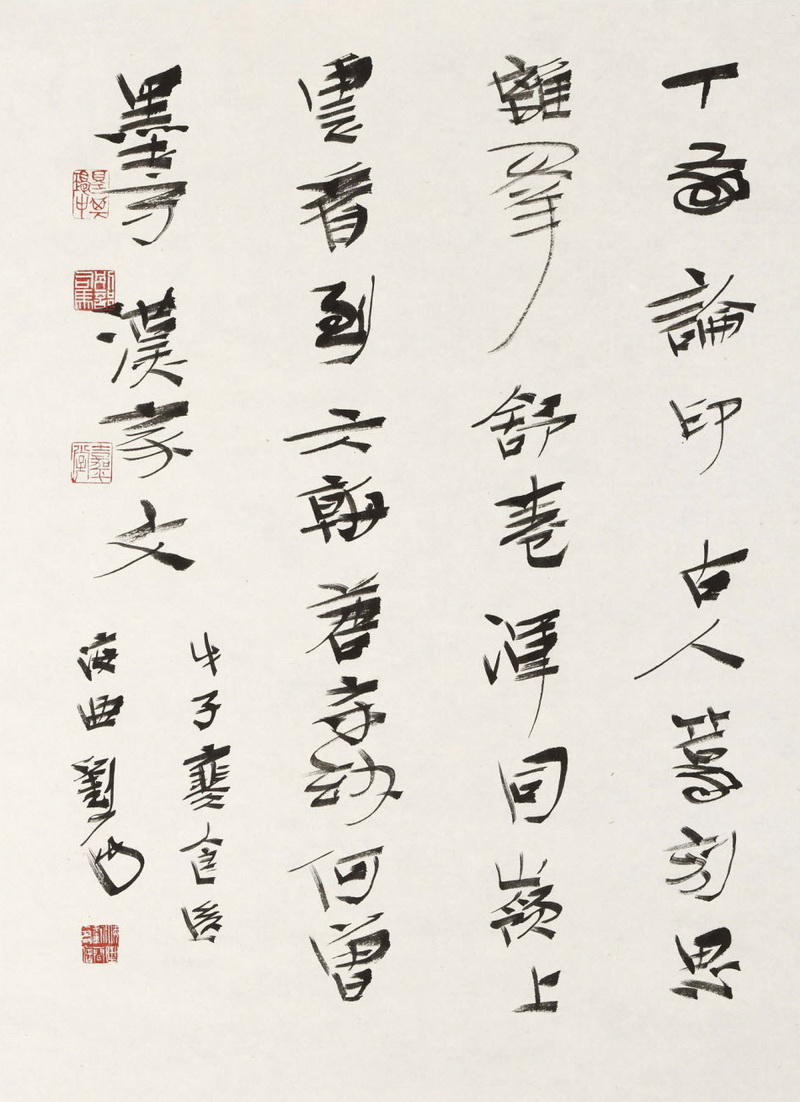 丁敬論印 古人篆刻思
離羣舒卷渾同嶺上
雲看到六朝唐宋妙何曾
墨守漢家文
戊子寒食後
海曲劉